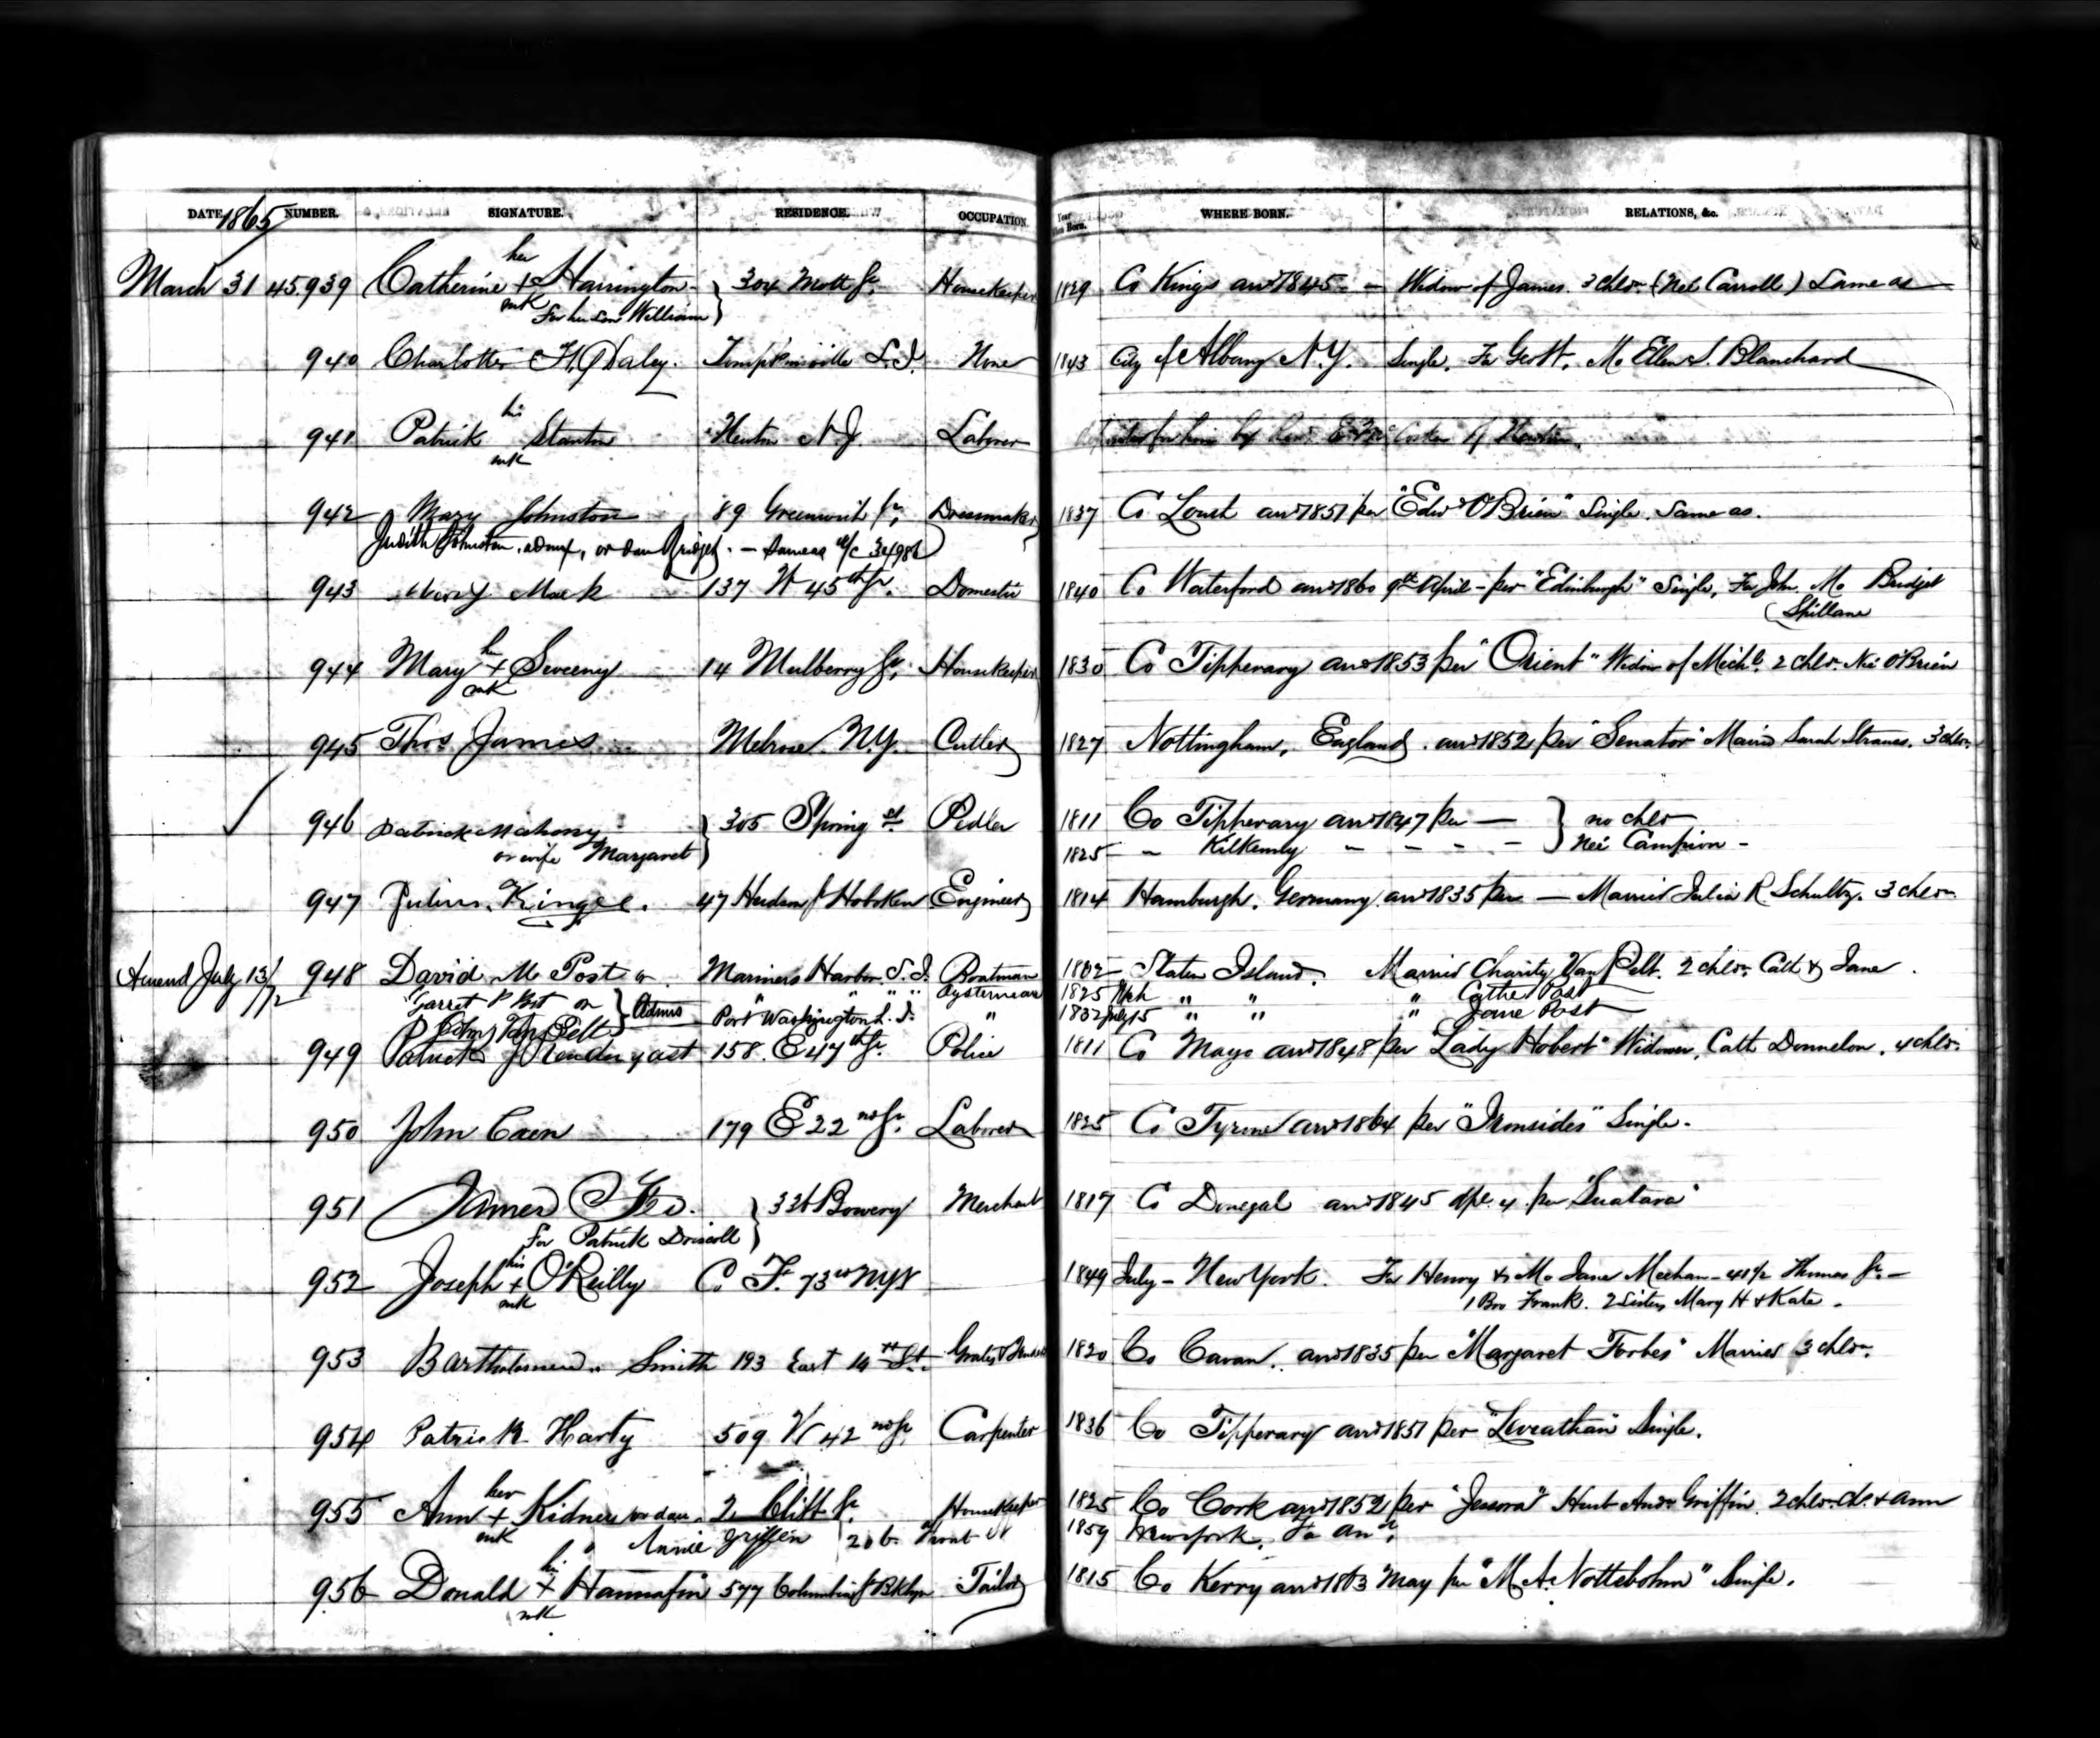 DATE 1865 NUMBER. SIGNATURE. RESIDENCE. OCCUPATION. Year When Born. WHERE BORN. RELATIONS, &c.
her
March 31 45.939 Catherine + Harrington 304 Mott St. Housekeeper 1829 Co Kings arrd 1845 - Widow of James. 3 chldn (Neé Carroll) Same as
mk For her son William
940 Charlotte H. Daley. Tompkinsville S.I. None 1843 City of Albany N.Y. Single. Fa Geo H. Mo Ellen S. Blanchard
his
941 Patrick Stanton Newton N.J. Laborer for him by Revd E. Mc of Newton.
mk
942 Mary Johnston 89 Greenwich St, Dressmaker 1837 Co Louth arrd 1851 per "Edwd O'Brien" Single. Same as.
Judith Johnston, admx, or dau Bridget. - Same as a/c 34986
943 Mary Mack 137 W 45th St. Domestic 1840 Co Waterford arrd 1860 9th April - per "Edinburgh" Single, Fa John. Mo Bridget
(Spillane
her
944 Mary + Sweeny 14 Mulberry St, Housekeeper 1830 Co Tipperary arrd 1853 per "Orient" Widow of Michl. 2 chldn. Neé O'Brien
mk
945 Thos James Melrose N.Y. Cutler 1827 Nottingham, England. arrd 1852 per "Senator" Marrd Sarah 3 chldn.
946 Patrick Mahony 305 Spring st Pedler 1811 Co Tipperary arrd 1847 per — } no chldn
or wife Margaret 1825 - Kilkenny - - - - Neé Campion -
947 Julius Kingel. 47 Hudson St Hoboken Engineer 1814 Hamburgh. Germany. arrd 1835 per — Married Julia R. Schultz. 3 chldn
Amend July 13/72 948 David M Post or Mariners Harbor S.I. Boatman 1802 Staten Island. Married Charity Van Pelt. 2 chldn. Cath & Jane.
Garret P Post or } Admrs " " " Oysterman 1825 " " " Cathe Post
John Van Pelt Port Washington L.I. " 1832 July 15 " " " Jane Post
949 Patrick J Prendergast 158. E 47th St. Police 1811 Co Mayo arrd 1848 per "Lady Hobert" Widower, Cath Donnelon. 4 chldn.
950 John Caen 179 E 22nd St. Laborer 1825 Co Tyrone arrd 1864 per "Ironsides" Single.
951 James 336 Bowery Merchant 1817 Co Donegal arrd 1845 Apl. 4. per "Suatara"
For Patrick Driscoll
his
952 Joseph + O'Reilly Co F. 73rd N.Y.V 1849 July - New York. Fa Henry & Mo Jane Meehan - 41½ Thomas St. -
mk 1 Bro Frank. 2 Sisters Mary H & Kate.
953 Bartholomew Smith 193 East 14th St. Grates & 1820 Co Cavan. arrd 1835 per "Margaret Forbes" Married 3 chldn.
954 Patrick Harty 509 W 42nd St, Carpenter 1836 Co Tipperary arrd 1851 per "Leveathan" Single.
her
955 Ann + Kidney or dau. 2 Cliff St. Housekeeper 1825 Co Cork arrd 1852 per "Jessora" Husb Andw Griffin. 2 chldn. & Ann
mk Annie Griffin 206. Front St 1859 Newyork. Fa Andw.
his
956 Donald + Hannafin 577 Columbia St Bklyn Tailor 1815 Co Kerry arrd 1863 May per "M.A. Nottebohm" Single.
mk